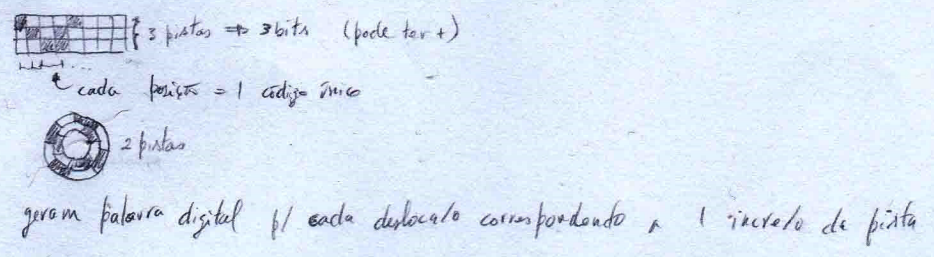 3 pistas => 3 bits (pode ter +)
cada posição = 1 código único
2 pistas
geram palavra digital p/ cada desloca/o correspondendo a 1 incre/o de pista